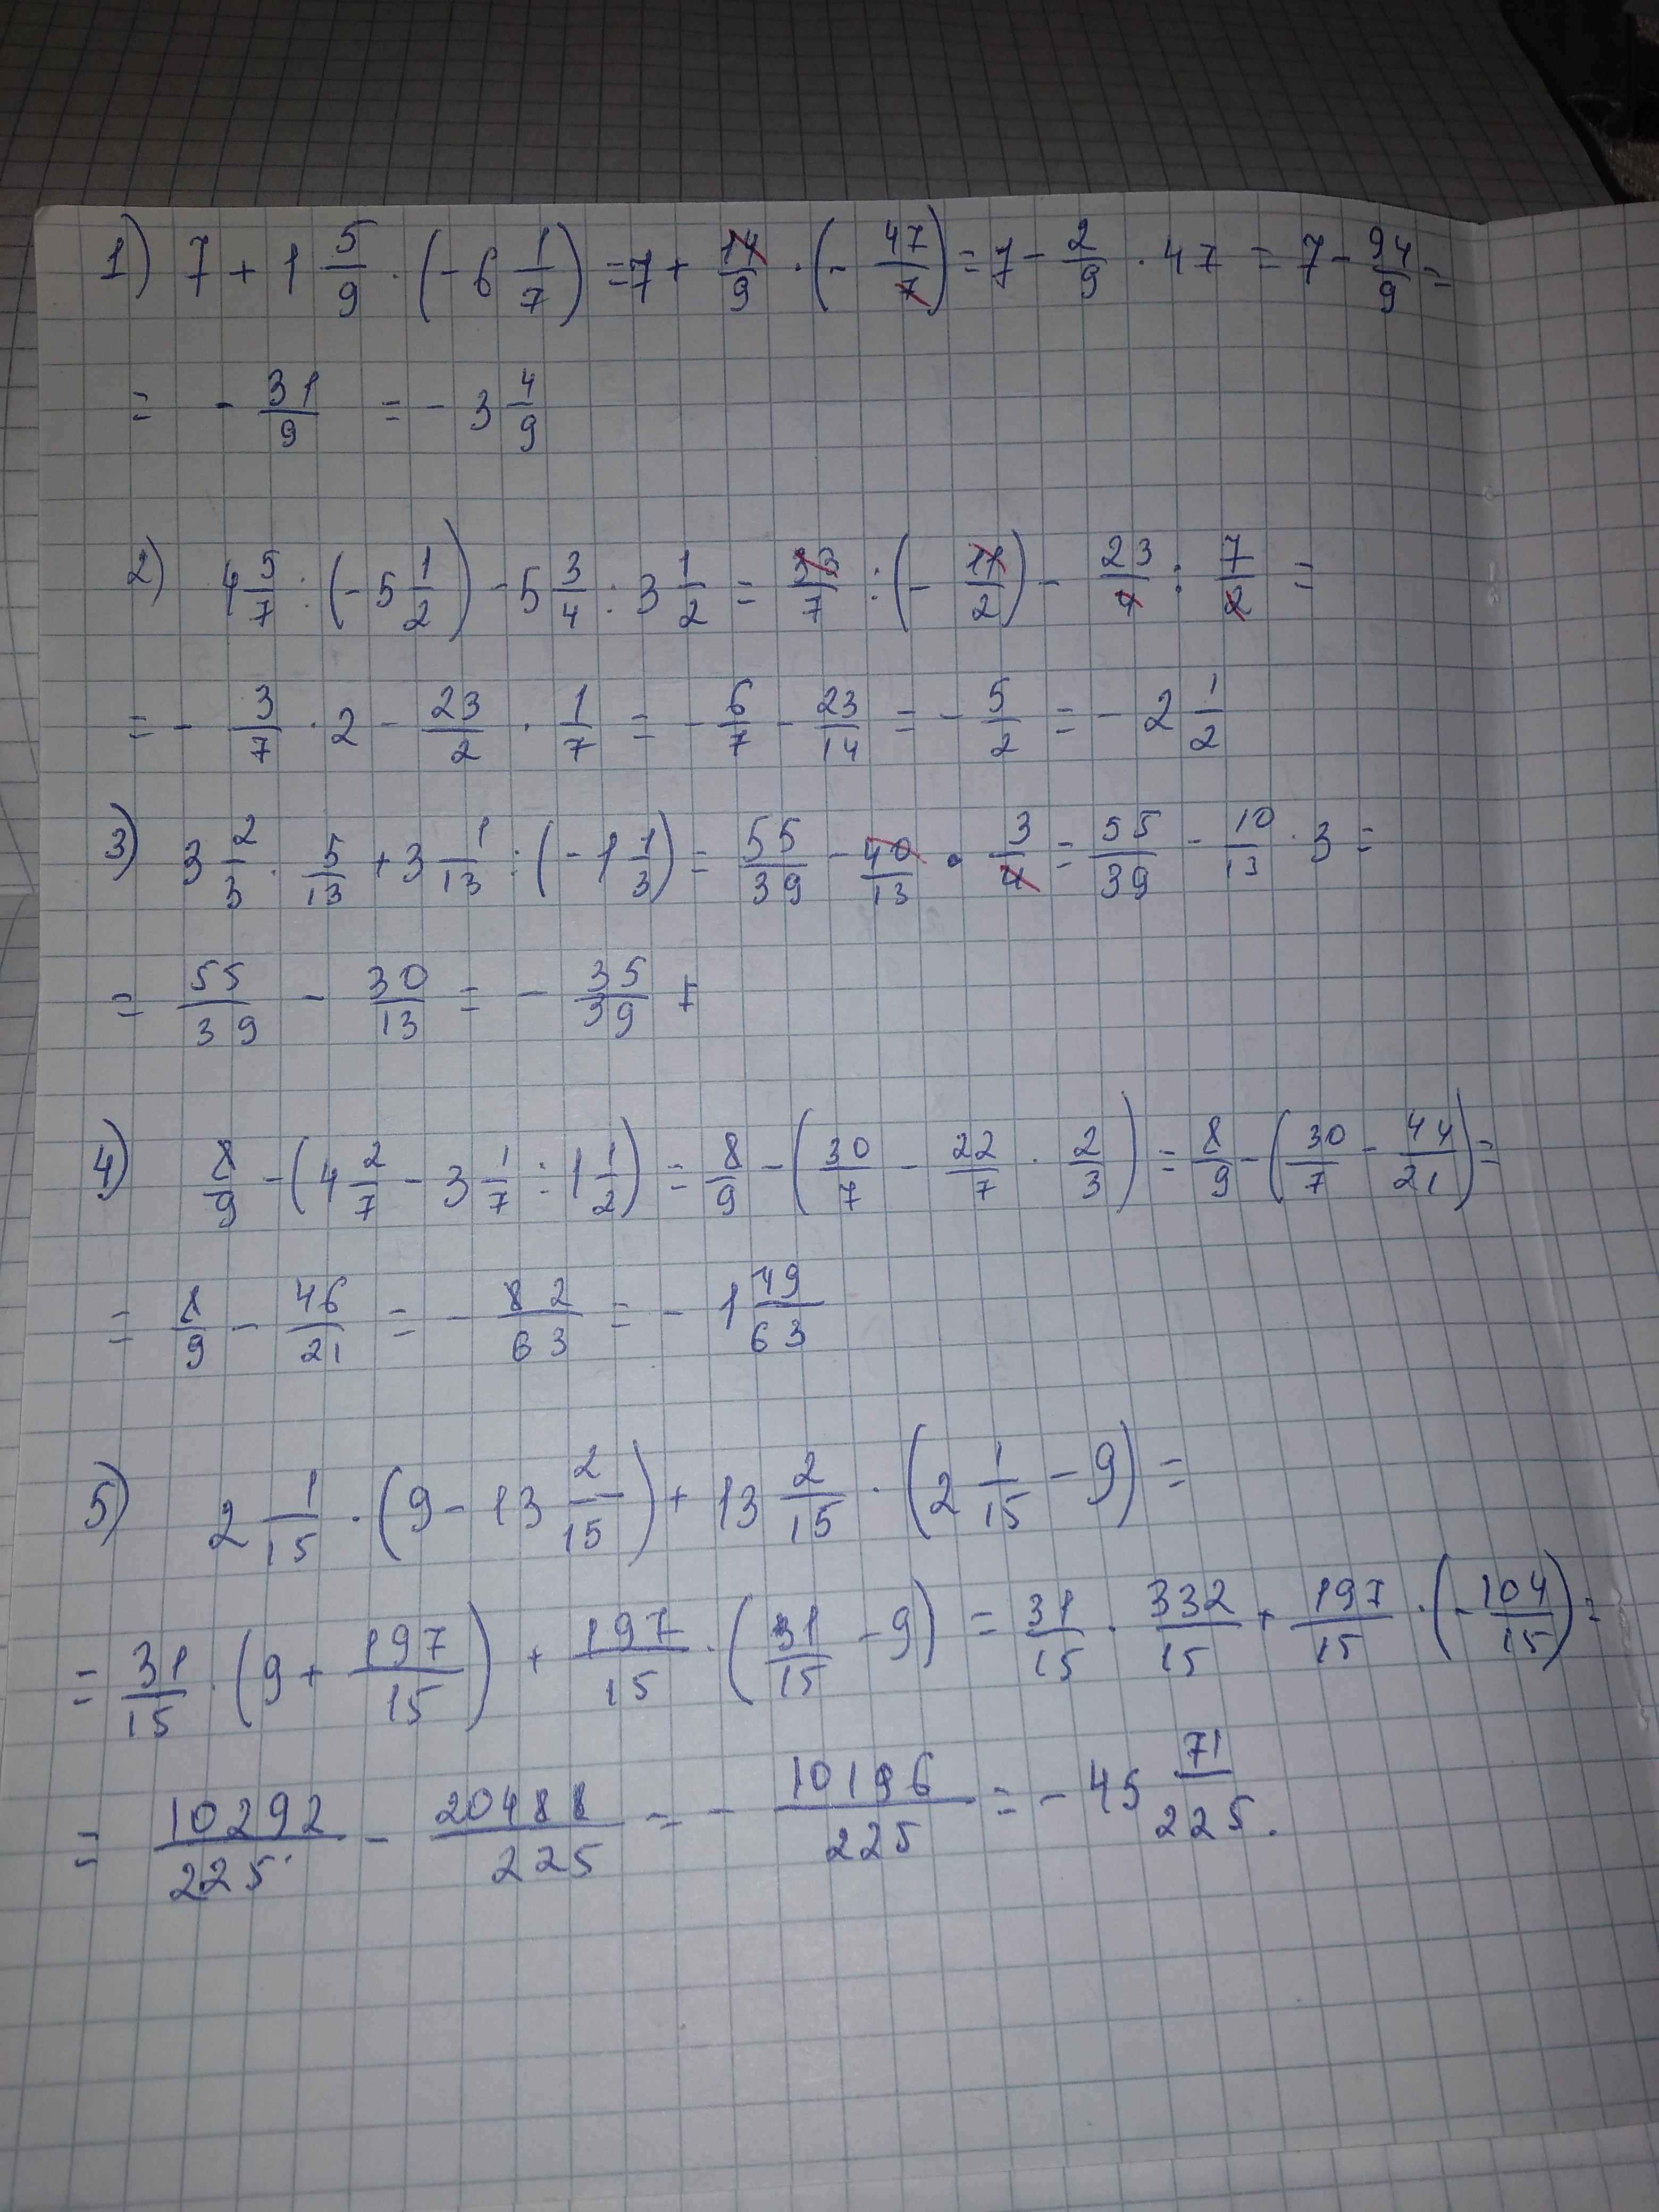 1) 7 + 1 5/9 · (- 6 1/7) = 7 + 14/9 · (- 47/7) = 7 - 2/9 · 47 = 7 - 94/9 =
= - 31/9 = - 3 4/9
2) 4 5/7 : (- 5 1/2) - 5 3/4 : 3 1/2 = 33/7 : (- 11/2) - 23/4 : 7/2 =
= - 3/7 · 2 - 23/2 · 1/7 = - 6/7 - 23/14 = - 5/2 = - 2 1/2
3) 3 2/3 · 5/13 + 3 1/13 : (- 1 1/3) = 55/39 - 40/13 · 3/4 = 55/39 - 10/13 · 3 =
= 55/39 - 30/13 = - 35/39
4) 8/9 - (4 2/7 - 3 1/7 : 1 1/2) = 8/9 - (30/7 - 22/7 · 2/3) = 8/9 - (30/7 - 44/21) =
= 8/9 - 46/21 = - 82/63 = - 1 19/63
5) 2 1/15 · (9 - 13 2/15) + 13 2/15 · (2 1/15 - 9) =
= 31/15 · (9 + 197/15) + 197/15 · (31/15 - 9) = 31/15 · 332/15 + 197/15 · (- 104/15) =
= 10292/225 - 20488/225 = - 10196/225 = - 45 71/225.